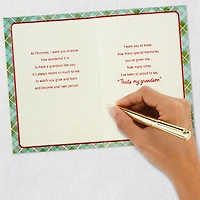 At Christmas, I want you to know
how wonderful it is
to have a grandson like you.
It's always meant so much to me
to watch you grow and learn
and become your own person.
I want you to know
how many special memories
you've given me...
how many times
I've been so proud to say,
"That's my grandson!"